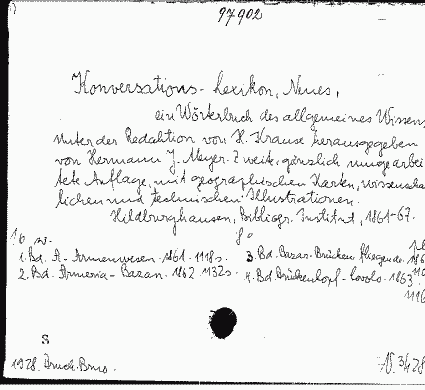 97902
Konversations-Lexikon, Neues,
ein Wörterbuch des allgemeines Wissens
Unter der Redaktion von H. Krause herausgegeben
von Hermann J. Meyer. Zweite, gänzlich umgearbei
tete Auflage, mit geographischen Karten, wissenscha
lichen und technischen Illustrationen.
Hildburghausen, Bibliogr. Institut, 1861-67.
8°
1. Bd. A- Armenwesen. 1861. 1118 s.
3. Bd. Bazar- Brücken fliegende. 186
2. Bd. Armeria- Bazan. 1862. 1132 s.
4. Bd. Brückenkopf- 1863.
1116
S
1928. Druck. Brno.